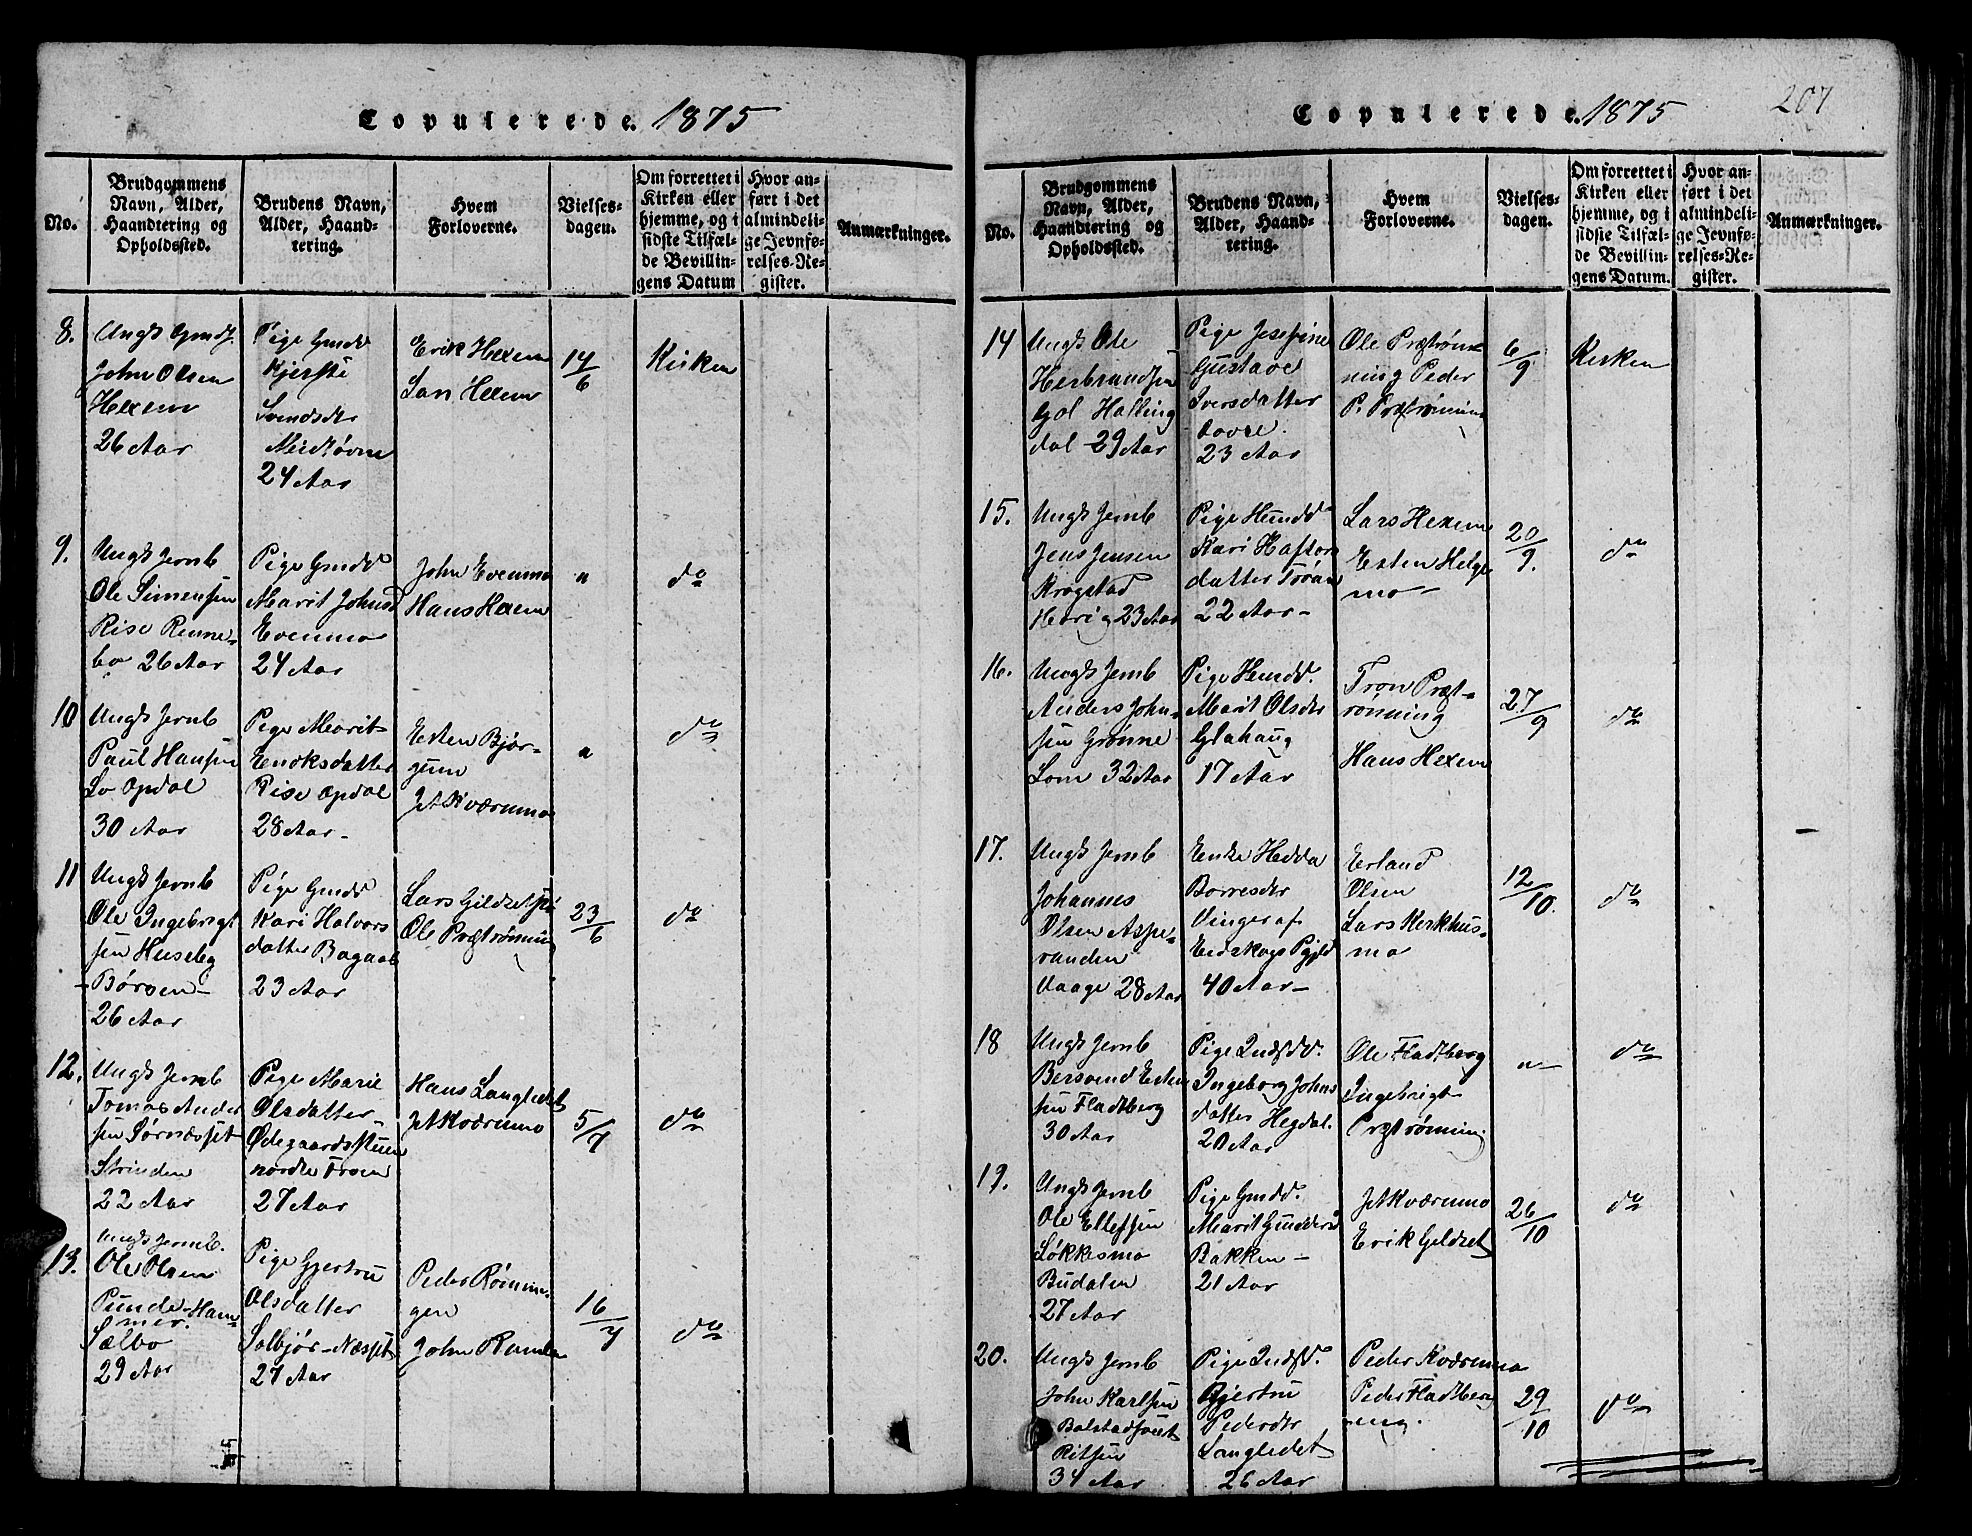 Copulerede. 1875
No.
Brudgommens
Navn, Alder,
Haandtering og
Opholdssted.
Brudens Navn,
Alder, Haand-
tering.
Hvem
Forloverne.
Vielses-
dagen.
Om forrettet i
Kirken eller
hjemme, og i
sidste Tilfæl-
de Bevillin-
gens Datum
Hvor an-
ført i det
almindeli-
ge Jevnfø-
relses-Re-
gister.
Anmærkninger.
8.
Ungk Gmdf.
John Olsen
Hexem
26 Aar
Pige Gmdd
Kjersti
Svendsdtr
24 Aar
Erik Hexem
Lars Hexem
14/6
Kirken
9.
Ungk Jernb
Ole Simensen
Rise Renne-
bo 26 Aar
Pige Gmdd
Marit Johnsd
Evenmo
24 Aar
John Evenmo
Hans Hexem
"
do
10
Ungk Jernb
Paul Hansen
Lo Opdal
30 Aar
Pige Marit
Eriksdatter
Rise Opdal
28 Aar-
Esten Bjør-
gum
JAKværnmo
"
do
11
Ungk Jernb
Ole Ingebrigt
sen Huseby
-Børsen-
26 Aar
Pige Gmdd
Kari Halvors
datter Bogaal
23 Aar
Lars Gildset
Ole Prætrønning
23/6
do
12.
Ungk Jernb
Tomas Ander
sen Sørnæsset
Strinden
22 Aar
Pige Marie
Olsdatter
Ødegaardsstuen
nordre Froen
27 Aar
Hans Langledet
JAKværnmo
5/7
do
13.
Ungk Jernb.
Ole Olsen
Punde-Ham-
mer.
Sælbo
29 Aar
Pige Gjertru
Olsdatter
Solbjør-Næsset
27 Aar
Peder Rønnin-
gen
John Ramlo
16/7
do
Copulerede. 1875
207
No.
Brudgommens
Navn, Alder,
Haandtering og
Opholdssted.
Brudens Navn,
Alder, Haand-
tering.
Hvem
Forloverne.
Vielses-
dagen.
Om forrettet i
Kirken eller
hjemme, og i
sidste Tilfæl-
de Bevillin-
gens Datum.
Hvor an-
ført i det
almindeli-
ge Jevnfø-
relses-Re-
gister.
Anmærkninger.
14
Ungk Ole
Herbrandsen
Gol Halling
dal 29 Aar
Pige Josefine
Gustave
Iversdatter
Dovre.
23 Aar
Ole Prætrøn-
ning Peder
P. Prætrønning
6/9
Kirken
15.
Ungk Jernb
Jens Jensen
Krogstad
Horig 23 Aar
Pige Husmdd
Kari Haftors
datter Trøan
22 Aar-
Lars Hexem
Esten Helge
mo-
20/9.
do
16.
Ungk Jernb
Anders John-
sen Grønne
Lom 32 Aar
Pige Husmdd.
Marit Olsdtr
Glahaug
17 Aar
Trøn Præt-
rønning
Hans Hexem
27/9
do
17.
Ungk Jernb
Johannes
Olsen Aspe-
randen
Vaage 28 Aar
Enke Hedda
Borresdtr
Vinger af
Eidskogs Pgjld
40 Aar-
Erland
Olsen
Lars Kirkhus-
mo
12/10.
do
18
Ungk Jernb
Bersvend Esten
sen Fladtberg
30 Aar
Pige Indsdd.
Ingeborg Johns
datter Hegdal.
20 Aar
Ole Fladtberg
Ingebrigt
Prætrønning
"-
do
19.
Ungk Jernb
Ole Ellefsen
Løkkesmo
Budalen
27 Aar
Pige Gmdd.
Marit Gundersd
Bakken-
21 Aar
JAKværnmo
Erik Gildset
26/10
do
20.
Ungk Jernb
John Karlsen
Ritsen
34 Aar
Pige Indsdd.
Gjertru
Pedersdtr
Langledet
26 Aar
Peder Kværnmo
Peder Fladtberg
eng.
29/10
do